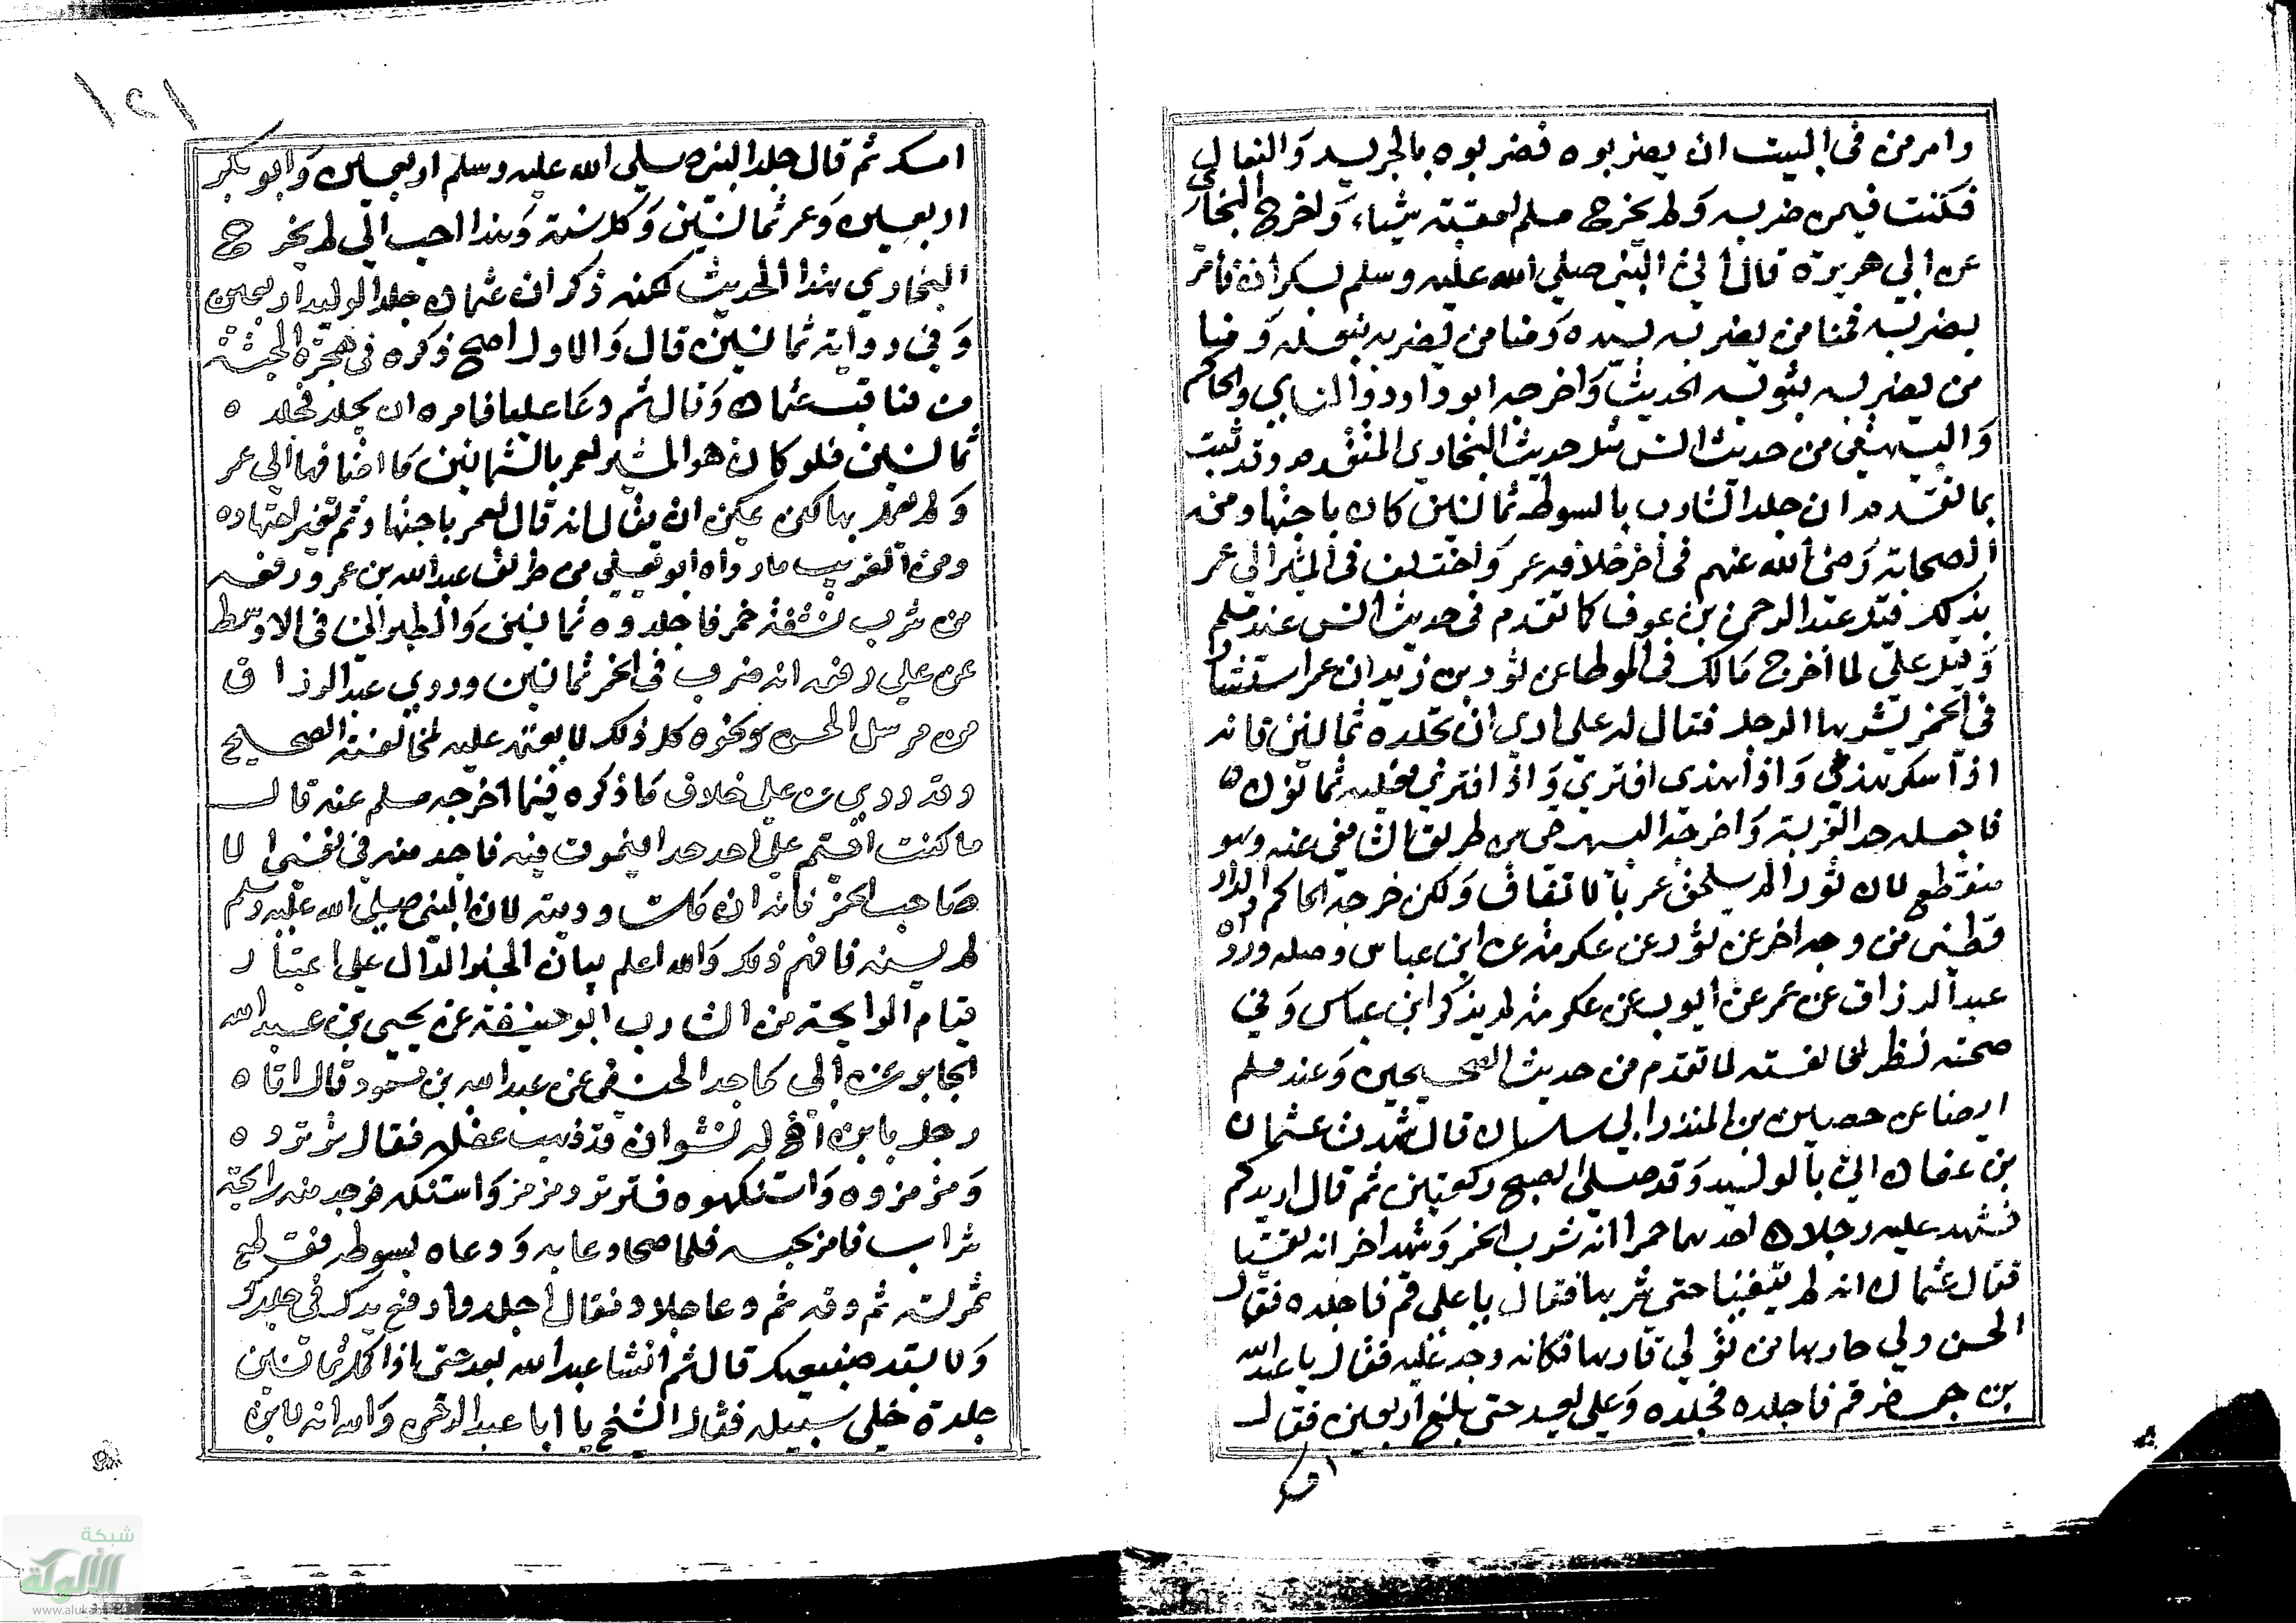 وامر من فى البيت ان يضربوه فضربوه بالجريد والنعال
فكنت فيمن ضربه ولم يخرج مسلم لعقبة شياء واخرج البخارى
عن ابى هريرة قال اتى النبى صلى الله عليه وسلم بسكران فامر
بضربه فمنا من يضربه بيده ومنا من يضربه بنعله ومنا
من يضربه بثوبه الحديث واخرجه ابو داود والنساى والحاكم
والبيهقى من حديث انس مثل حديث البخاري المتقدم وقد ثبت
بما تقدم ان جلد الشارب بالسوط ثمانين كان باجتهاد من
الصحابة رضى الله عنهم فى اخر خلافه عمر واختلف فى المشير الى عمر
بذلك فقيل عبد الرحمن بن عوف كما تقدم فى حديث انس عند مسلم
وقيل على لما اخرج مالك فى الموطا عن ثور بن زيد ان عمر استشار
فى الخمر يشربها الرجل فقال له على ارى ان تجلده ثمانين فانه
اذا سكر هذى واذا هذى افترى واذا افترى فعليه ثمانون
فاجعله حد الفرية واخرجه البيهقى من طريق الشافعى عنه وهو
منقطع لان ثورا لم يلحق عمر بالاتفاق ولكن خرجه الحاكم والدار
قطنى من وجه اخر عن ثور عن عكرمة عن ابن عباس وصله ورواه
عبد الرزاق عن معمر عن ايوب عن عكرمة لم يذكر ابن عباس وفى
صحته نظر لمخالفته لما تقدم من حديث الصحيحين وعند مسلم
ايضا عن حصين بن المنذر ابى ساسان قال شهدت عثمان
بن عفان اتى بالوليد وقد صلى الصبح ركعتين ثم قال ازيدكم
فشهد عليه رجلان احدهما حمران انه شرب الخمر وشهد اخر انه تقيا
فقال عثمان انه لم يتقيا حتى شربها فقال يا على قم فاجلده فقال
الحسن ولي حارها من تولي قارها فكانه وجد عليه فقال يا عبد الله
بن جعفر قم فاجلده فجلده وعلى يعد حتى بلغ اربعين فقال
امسك ثم قال جلد النبى صلى الله عليه وسلم اربعين وابو بكر
اربعين وعمر ثمانين وكل سنة وهذا احب الى لم يخرج
البخاري هذا الحديث لكنه ذكر ان عثمان جلد الوليد اربعين
وفى رواية ثمانين قال والاول اصح ذكره فى هجرة الحبشة
من مناقب عثمان وقال ثم دعا عليا فامره ان يجلد فجلد ه
ثمانين فلو كان هو المشير لعمر بالثمانين ما اضافها الى عمر
ولم يعمل بها لكن يمكن ان يقال انه قال لعمر باجتهاد ثم تغير اجتهاده
ومن الغريب ما رواه ابو يعلى من طريق عبد الله بن عمرو رفعه
من شرب بشقة خمر فاجلدوه ثمانين والطبرانى فى الاوسط
عن على رفعه انه ضرب فى الخمر ثمانين وروي عبد الرزاق
من مرسل الحسن نحوه كل ذلك لا يعتمد عليه لمخالفته الصحيح
وقد روي عن على خلاف ما ذكره فيما اخرجه مسلم عنه قال
ما كنت اقيم على احد حدا فيموت فيه فاجد منه فى نفسى الا
صاحب الخمر فانه ان مات وديته لان النبى صلى الله عليه وسلم
لم يسنه فافهم ذلك والله اعلم بيان الخبر الدال على اعتبار
قيام الرايحة من الشارب ابو حنيفة عن يحيى بن عبد الله
الجابر عن ابى ماجد الحنفى عن عبد الله بن مسعود قال اتاه
رجل بابن اخ له نشوان قد ذهب عقله فقال ترتروه
ومزمزوه واستنكهوه فترتر ومزمز واستنكه فوجد منه رايحة
شراب فامر بحبسه فلما صحا دعا به ودعاه بسوط فقطع
ثمرته ثم دقه ثم دعا جلادا فقال اجلد وارفع يدك فى جلدك
ولا تبد ضبعيك قال ثم انشا عبد الله يعد حتى اذا اكمل ثمانين
جلدة خلى سبيله فقال الشيخ يا ابا عبد الرحمن والله انه لابن